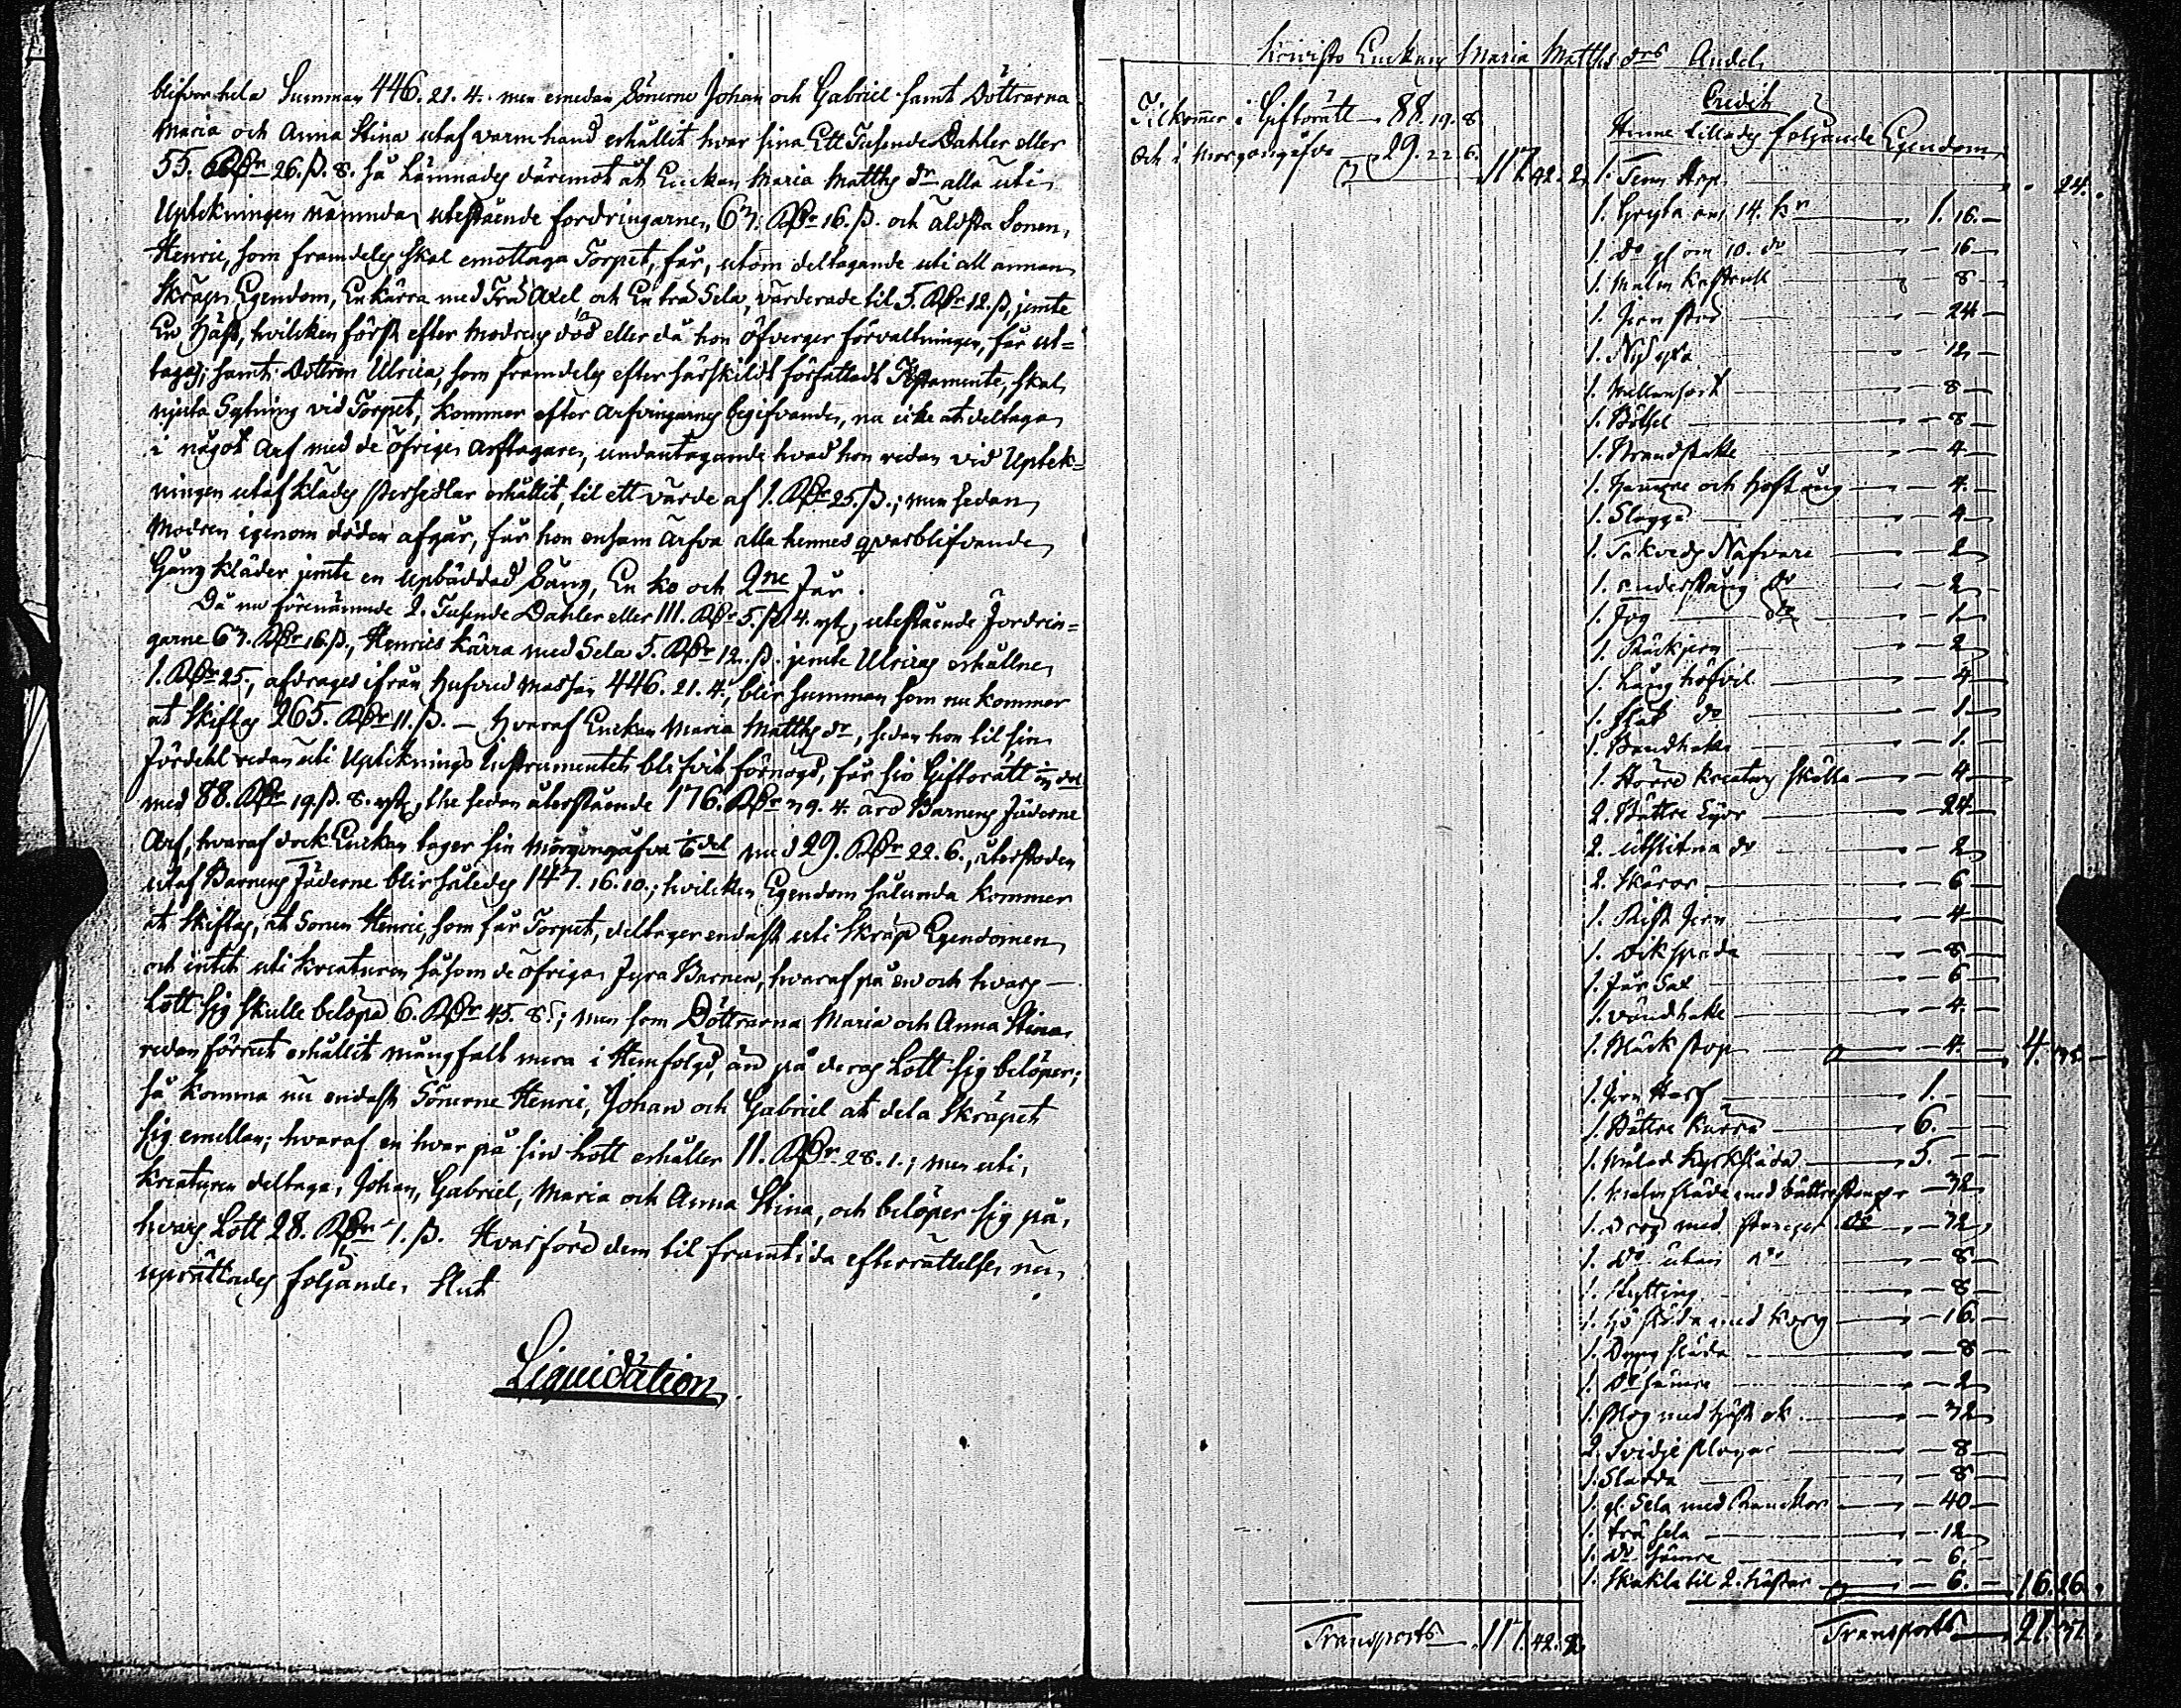 blifver hela Summan 446. 21. 4. men emedan Sönerne Johan och Gabriel samt Döttrarna
Maria och Anna Stina utaf varm hand erhållit hvar sina Ett Tusende Dahler eller
55. Rdr 26. ß. 8. så lämnades däremot åt Enckan Maria Matths dr alla uti
Uptekningen nämnda utestående fordringarne, 63. Rdr 16. ß. och äldsta Sonen,
Henric, som framdeles skal emottaga Torpet, får, utom deltagande uti all annan
Skräps Egendom, En kärra med Trä Axel och En trä Sela, värderade til 5. Rdr 12. ß, jemte
En Häst, hvilcken först efter Modrens död eller då hon öfverger förvaltningen, får ut=
tagas; samt Dottren Ulrica, som framdeles efter särskildt författadt Testamente, skal
njuta Sytning vid Torpet, kommer efter Arfvingarnes begifvande, nu icke at deltaga
i något Arf med de öfriga Arftagare, undantagande hvad hon redan vid Uptek=
ningen utaf klädes persedlar erhållit, til ett värde af 1. Rdr 25. ß.; men sedan
Modren igenom döden afgår, får hon ensam ärfva alla hennes qvarblifvande
Gång kläder jemte en Upbäddad Säng, En ko och 2ne Får.
Då nu förenämnde 2. Tusende Dahler eller 111. Rdr 5. ß 4. rst, utestående Fordrin=
garne 63. Rdr 16. ß., Henrics Kärra med Sela 5. Rdr 12. ß. jemte Ulricas erhållne
1. Rdr 25., afdrages ifrån Hufvud Massan 446. 21. 4., blir summan som nu kommer
at Skiftas 265. Rdr 11. ß. — Hvaraf Enckan Maria Matths dr, sedan hon til sin
Fördehl redan uti Uptecknings Instrumentet blifvit förnögd, får sin Giftorätt
med 88. Rdr 19. ß. 8. rst, the sedan återstående 176. Rdr 39. 4. äro Barnens Fäderne
Arf, hvaraf dock Enckan tager sin Morgongåfva 1/6 del med 29. Rdr 22. 6., återstoden
utaf Barnens Fäderne blir således 147. 16. 10.; hvilcken Egendom sålunda kommer
at Skiftas, at Sonen Henric, som får Torpet, deltager endast uti Skräp Egendomen
och intet uti kreaturen såsom de öfriga fyra Barnen, hvaraf på en och hvars —
Lott sig skulle belöpa 6. Rdr 45. 8.; men som Döttrarna Maria och Anna Stina
redan förrut erhållit mångfalt mera i Hemfölgd, än på deras Lott sig belöper;
så komma nu endast Sönerne Henric, Johan och Gabriel at dela Skräpet
sig emellan; hvaraf en hvar på sin Lott erhåller 11. Rdr 28. 1.; men uti
kreaturen deltaga, Johan, Gabriel, Maria och Anna Stina, och belöper sig på
hvars Lott 28. Rdr 1. ß. Hvarföre dem til framtida efterrättelse nu
uprättades följande, Slut
Liquidation.
Enckans Maria Matths drs Andel
Tilkommer i Giftorätt 88. 19. 8
Och i Morgongåfva 29. 22. 6. 117. 42. 2
Transport 117. 42. 2
Credit
Henne tillades följande Egendom
1. Tenn Stop 24.
1. Gryta om 14. kr 1. 16. —
1. do gl om 10. do — 16 —
1. Malm Kastrull — 8 —
1. Jern stör — 24 —
1. Nyd yxa — 12 —
1. — 8 —
1. Bettsel — 8 —
1. Brandstake — 4 —
1. Hammare och Hoftång — 4. —
1. Slägga — 4 —
1. Nafvare — 2
1. do — 2
1. Fog do — 1. —
1. — 2
1. Lång höfvel — 4 —
1. Slät do — 1. —
1. Bandhake — 1. —
1. Större kreaturs skälla — 4. —
2. Bättre Lijor — 24 —
2. utslitna do — 2
2. Skäror — 6 —
1. Rist Jern — 4 —
1. Dikspada — 8 —
1. Får Sax — 6 —
1. Vändhake — 4. —
1. Mäsk stop — 4. — 4.
1. Jern Harf 1. —
1. Bättre Kärra 6. —
1. Målad Kyrksläda 5. —
1. med bättre stänger — 32
1. Drog med stänger — 32
1. do utan do — 8 —
1. Kytting — 8 —
1. Hö släda med korg — 16. —
1. Dyng släda — 8 —
1. do sämre — 2
1. Plog med Häst ok — 32
2. Svidje plogar — 8 —
1. Sladda — 8 —
1. gl. Sela med Ranckor — 40 —
1. trä sela — 12
1. do sämre — 6. —
1. Skakla til 2. hästar — 6. — 16. 26.
Transport 21. 37.